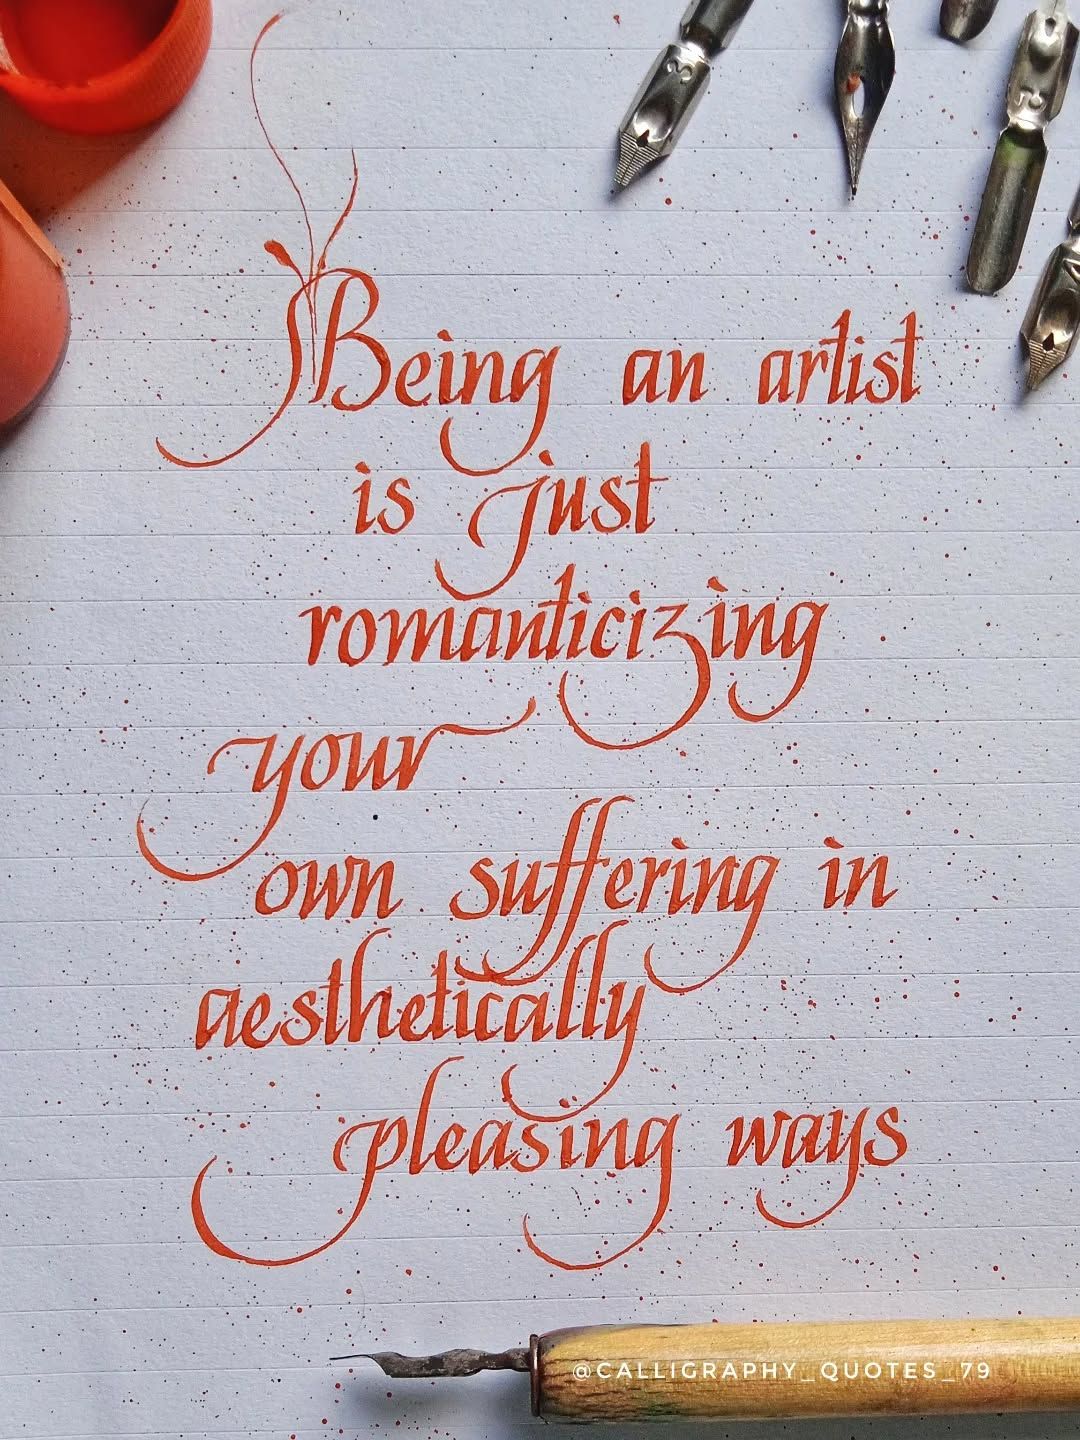 Being an artist
is just
romanticizing
your
own suffering in
aesthetically
pleasing ways
@CALLIGRAPHY_QUOTES_79